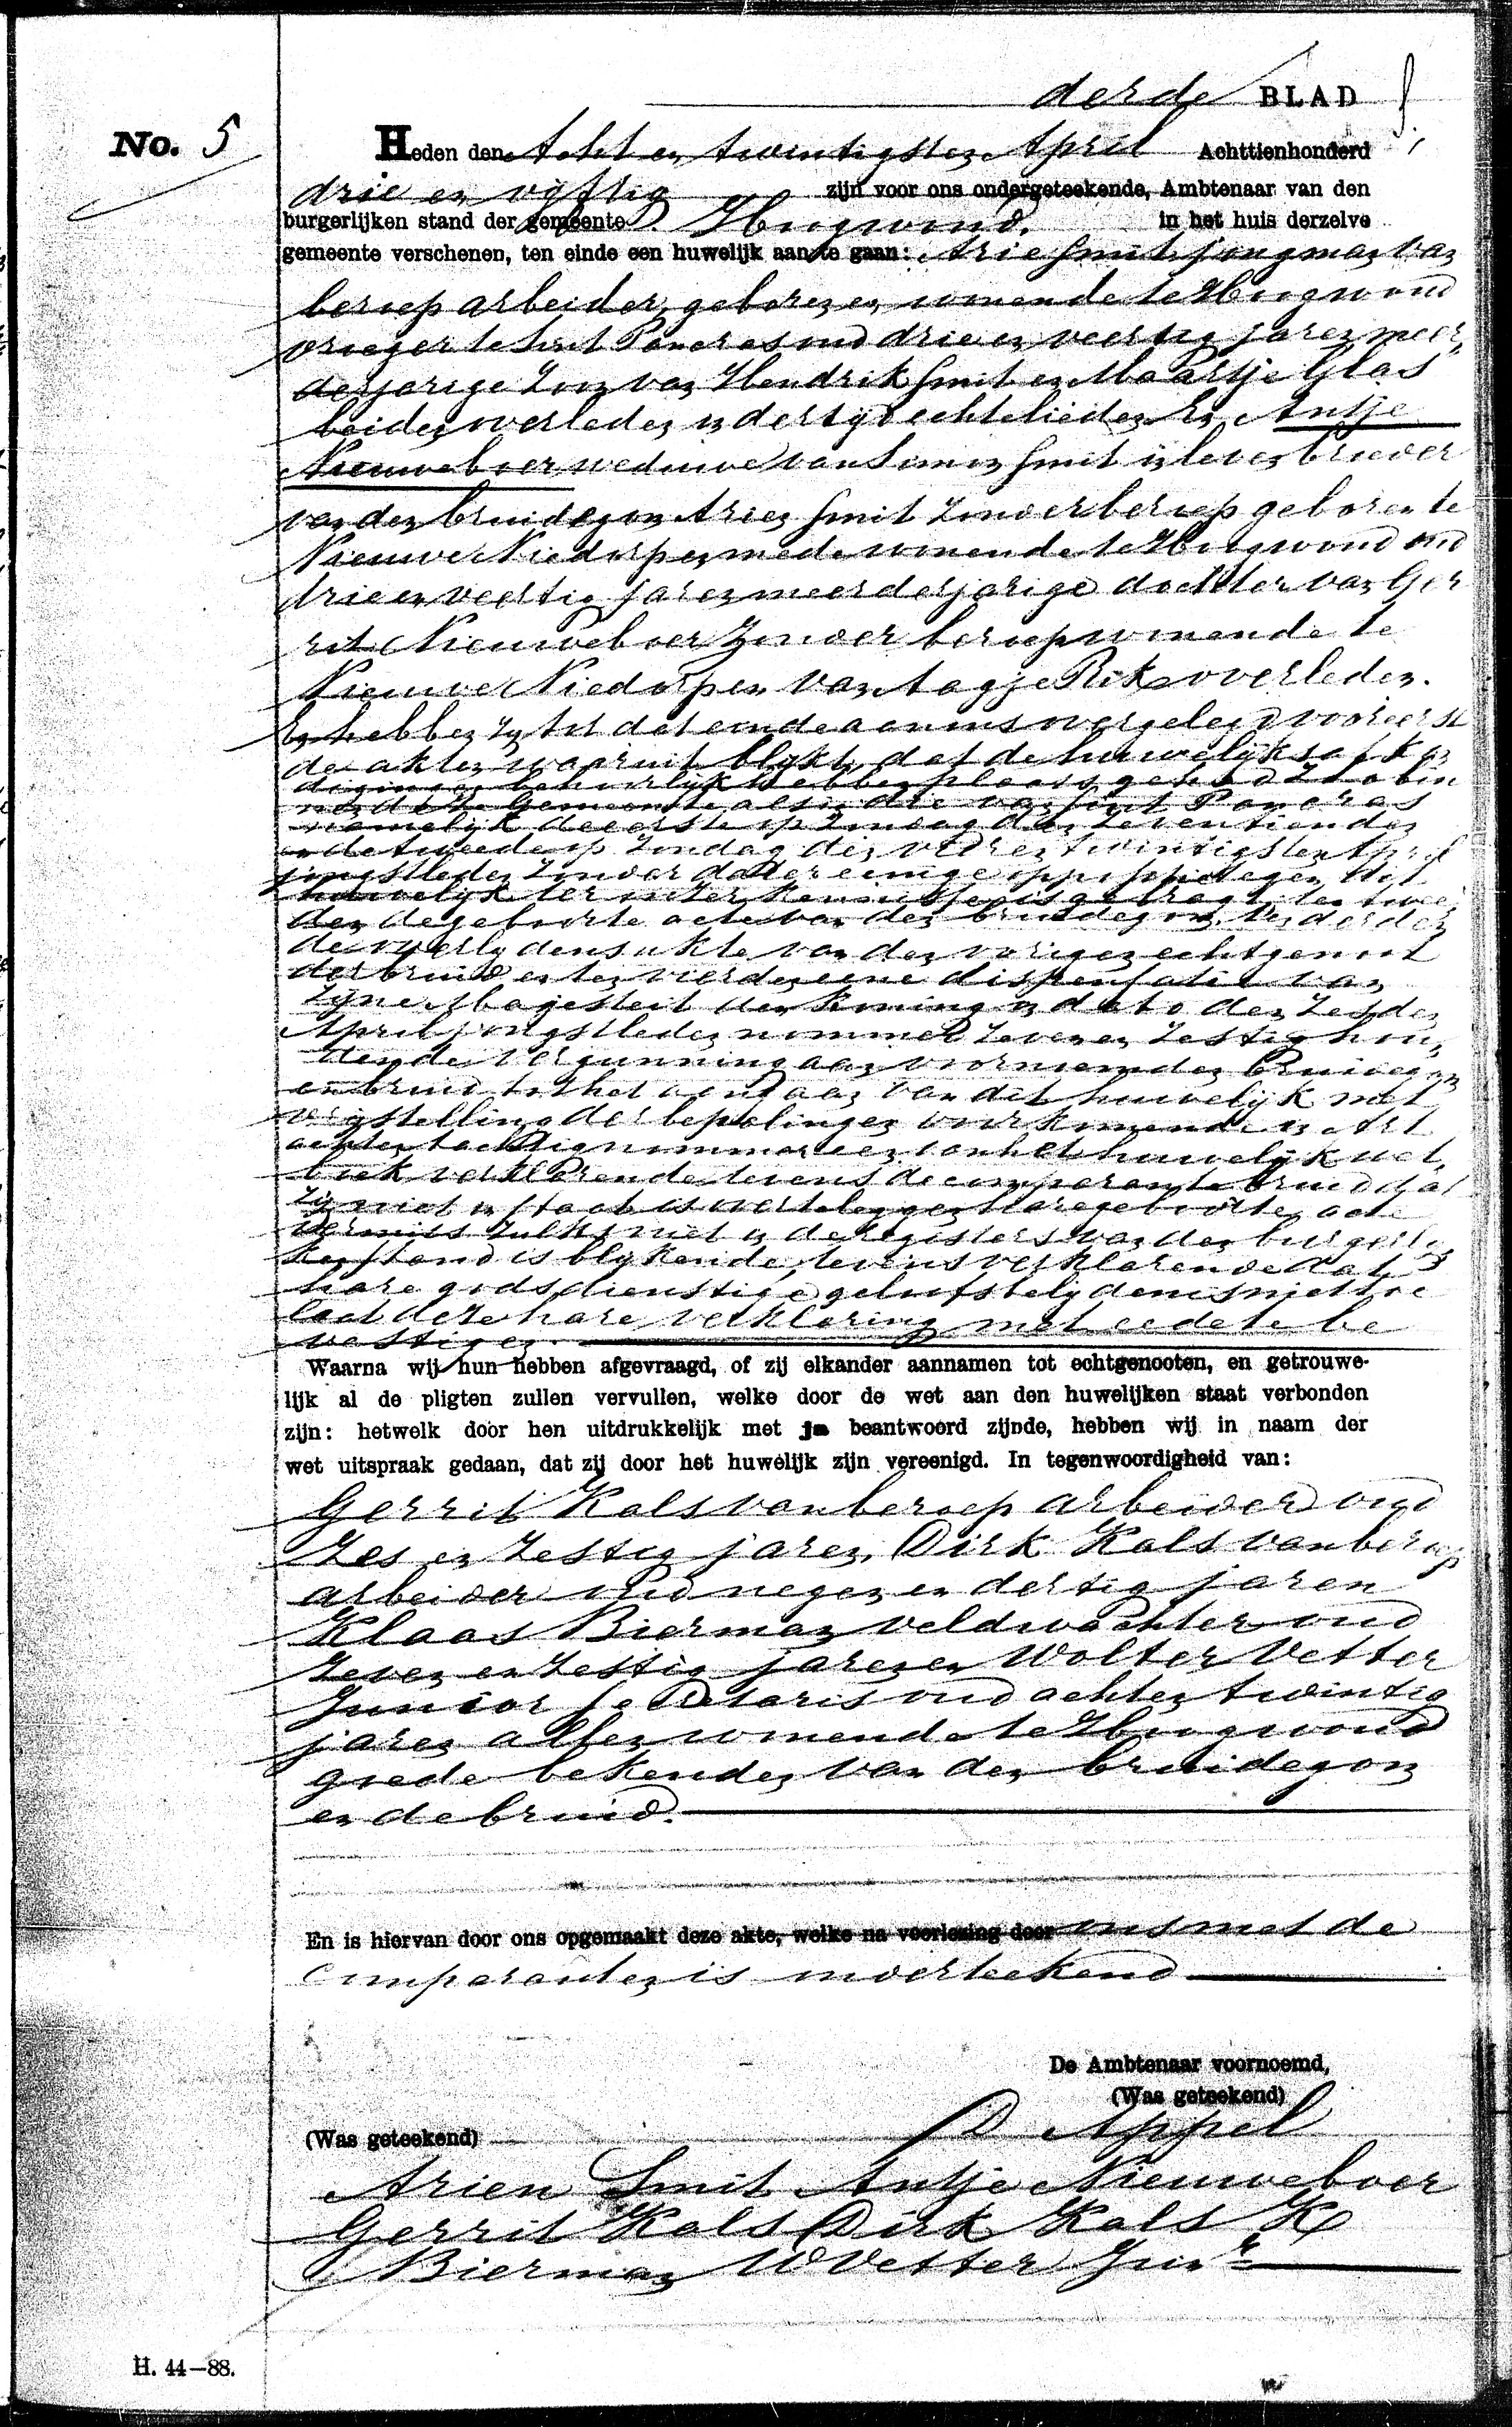 derde BLAD
No. 5
Heden den Acht en twintigsten April Achttienhonderd
drie en vijftig zijn voor ons ondergeteekende, Ambtenaar van den
burgerlijken stand der gemeente Hoogwoud. in het huis derzelve
gemeente verschenen, ten einde een huwelijk aan te gaan: Arie Smit jongman van
beroep arbeider, geboren en wonende te Hoogwoud
vroeger te Sint Pancras oud drie en veertig jaren meer,
derjarige Zoon van Hendrik Smit en Maartje Glas
beiden overleden in dertijd echtelieden En Antje
Nieuweboer weduwe van Simon Smit in leven broeder
van den bruidegom Arien Smit Zonder beroep geboren te
Nieuwe Niedorp en mede wonende te Hoogwoud oud
drie en veertig jaren meerderjarige dochter van Ger
rit Nieuweboer Zonder beroep wonende te
Nieuwe Niedorp en van Aagje Rik overleden.
En hebben zij tot dat einde aan ons overgelegd vooreerst
de akten waaruit blijkt, dat de huwelijksafkon
digingen behoorlijk hebben plaats gehad Zoo bin
nen deze Gemeente als in die van Sint Pancras
namelijk de eerste op Zondag den Zeventienden
en de tweede op Zondag den vier en twintigsten April
jongstleden Zonder dat er eenige oppositie tegen dit
huwelijk ter onzer kennisse is gebragt, ten twee
den de geboorte acte van den bruidegom ten derden
de overlijdensakte van den vorigen echtgenoot
der bruid en ten vierden eene dispensatie van
Zijne Majesteit den Koning in dato den Zesden
April jongstleden nommer Zeven en Zestig hou,
dende vergunning aan voornoemden Bruidegom
en bruid tot het aangaan van dit huwelijk met
vrijstelling der bepalingen voorkomende in Art
acht en tachtig nommer een van het huwelijk wet,
boek verklarende tevens de comparante bruid dat
zij niet in staat is over te leggen hare geboorte acte
vermits zulks niet in de registers van den burgerlij
ken stand is blijkende, tevens verklarende dat
hare godsdienstige geloofsbelijdenis niet toe
laat deze hare verklaring met eede te be
vestigen.
Waarna wij hun hebben afgevraagd, of zij elkander aannamen tot echtgenooten, en getrouwe-
lijk al de pligten zullen vervullen, welke door de wet aan den huwelijken staat verbonden
zijn: hetwelk door hen uitdrukkelijk met ja beantwoord zijnde, hebben wij in naam der
wet uitspraak gedaan, dat zij door het huwelijk zijn vereenigd. In tegenwoordigheid van:
Gerrit Kals van beroep arbeider oud
Zes en Zestig jaren, Dirk Kals van beroep
arbeider oud negen en dertig jaren
Klaas Bierman veldwachter oud
Zeven en Zestig jaren en Wolter Vetter
Junior Secretaris oud acht en twintig
jaren allen wonende te Hoogwoud
goede bekenden van den bruidegom
en de bruid.
En is hiervan door ons opgemaakt deze akte, welke na voorlezing door ons met de
Comparanten is onderteekend
De Ambtenaar voornoemd,
(Was geteekend)
(Was geteekend) D Appel
Arien Smit Antje Nieuweboer
Gerrit Kals Dirk Kals K
Bierman W Vetter Junr
H. 44—88.